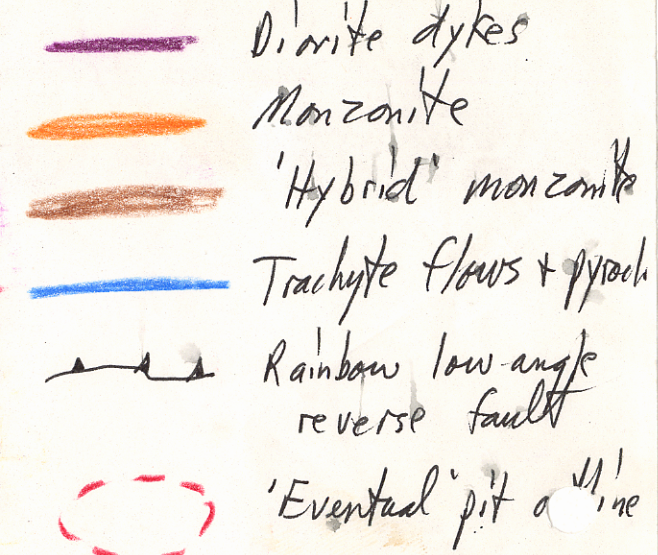 Diorite dykes
Monzonite
'Hybrid' monzonite
Trachyte flows +
Rainbow low-angle
reverse fault
'Eventual' pit